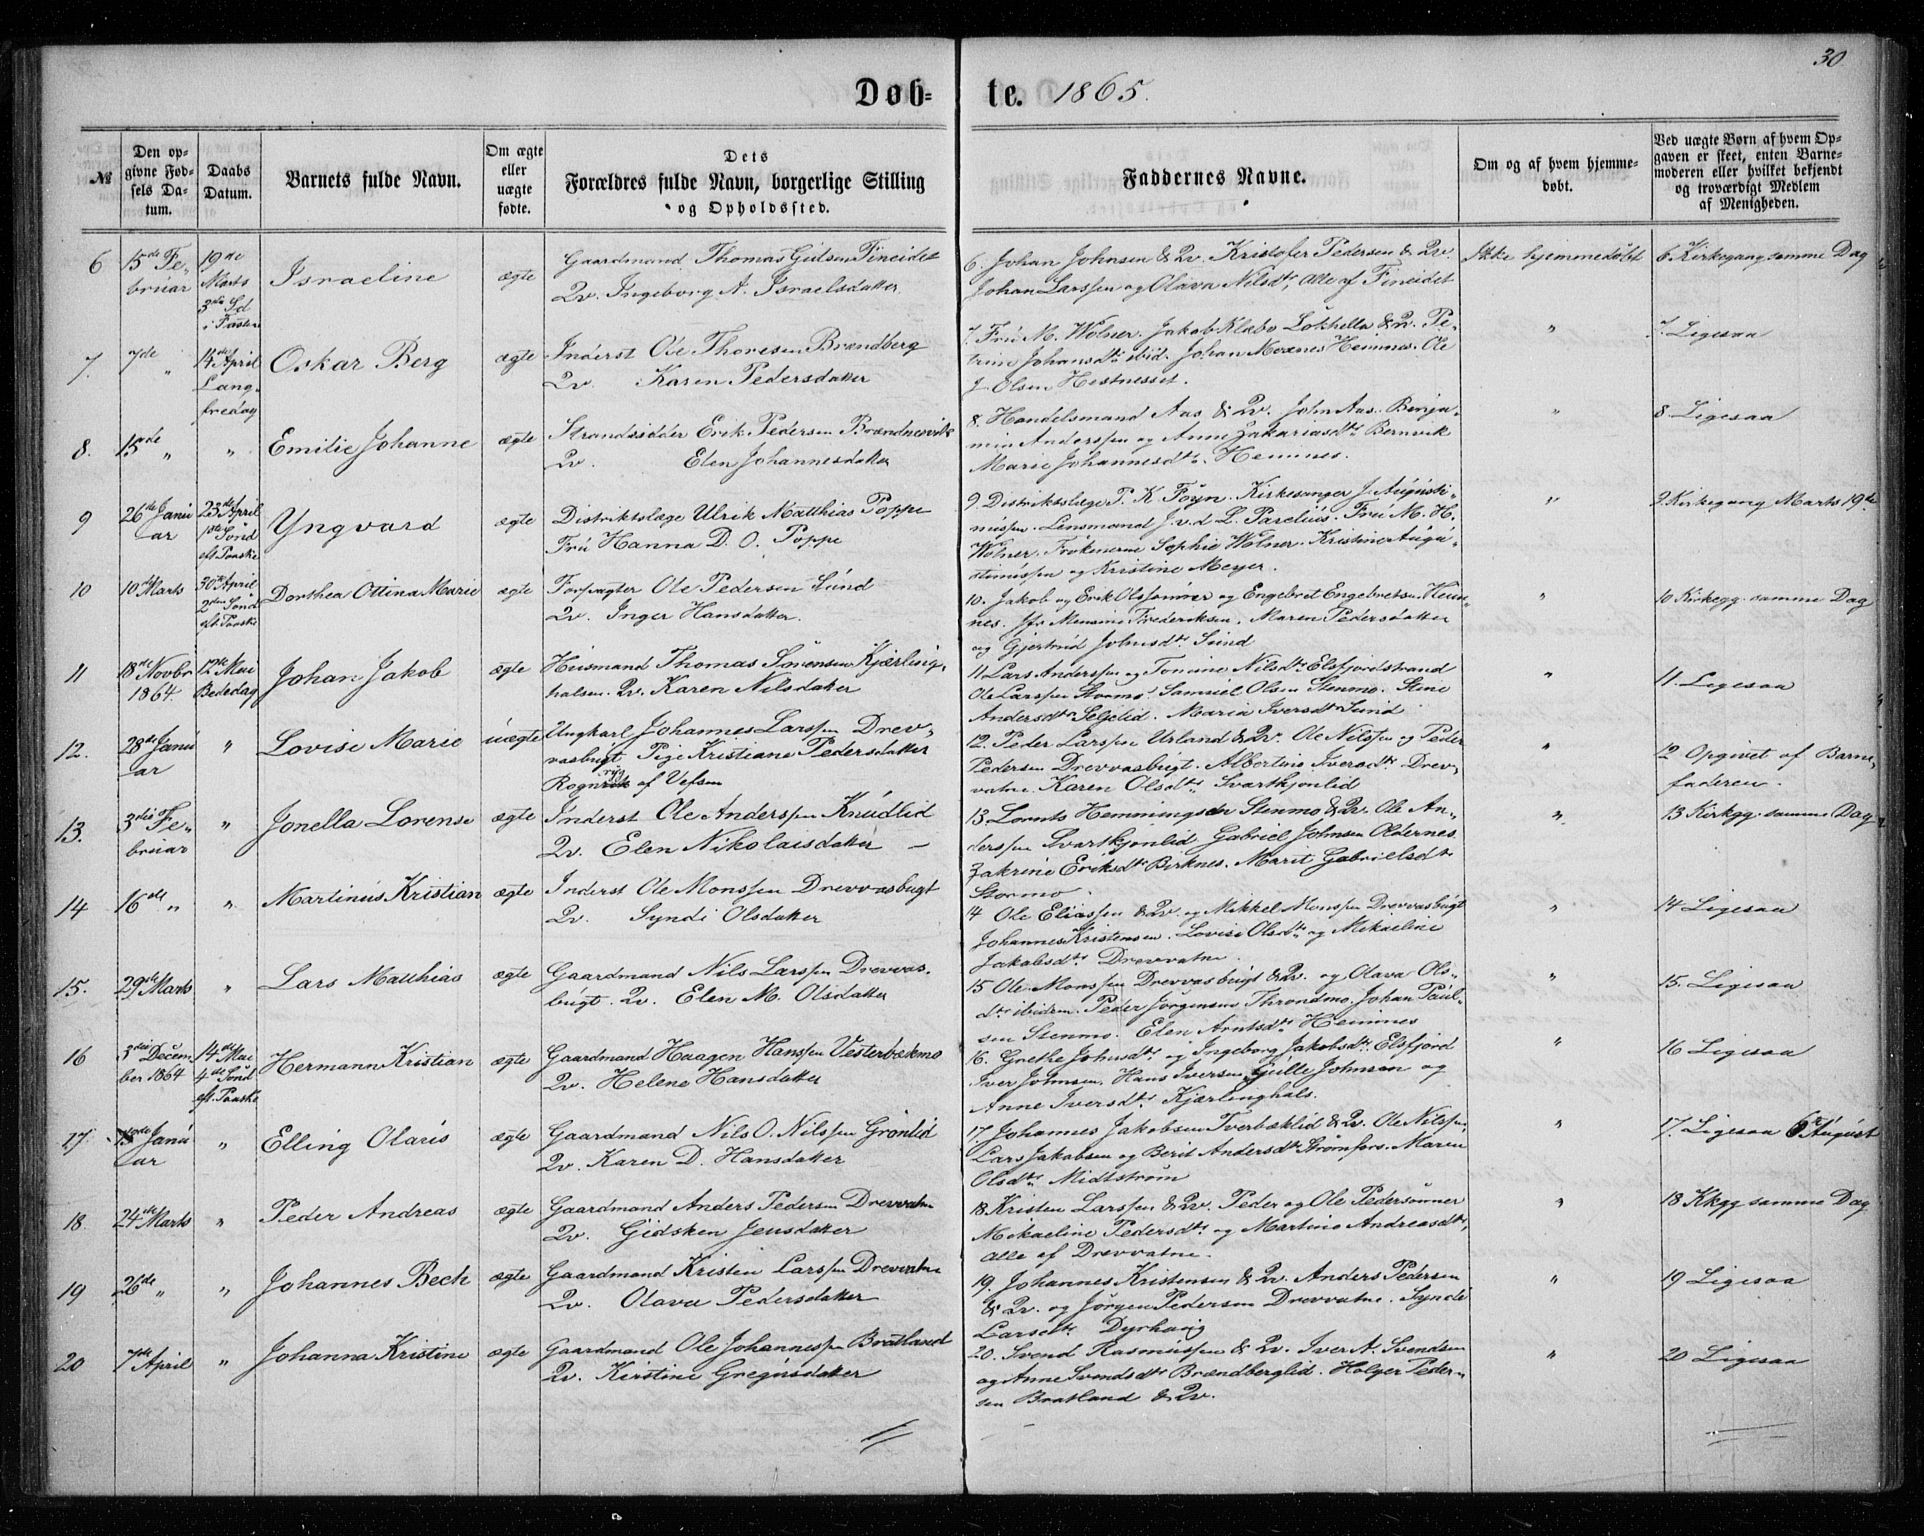 30
Døb-
te. 1865.
№
Den op-
givne Fød-
sels Da-
tum.
Daabs
Datum.
Barnets fulde Navn.
Om ægte
eller
uægte
fødte.
Dets
Forældres fulde Navn, borgerlige Stilling
og Opholdssted.
Faddernes Navne.
Om og af hvem hjemme-
døbt.
Ved uægte Børn af hvem Op-
gaven er skeet, enten Barne-
moderen eller hvilket bekjendt
og troværdigt Medlem
af Menigheden.
6
15de Fe-
bruar
19de
Marts
3die Sd
i Fasten
Israeline
ægte
Gaardmand Thomas Fineidet
Qv. Ingeborg A. Israelsdatter
6. Johan Johnsen & Qv. Kristofer Pedersen & Qv.
Johan Larssen og Olava Nilsdt, Alle af Fineidet
Ikke hjemmedøbt
6 Kirkegang samme Dag
7
7de "
14de April
Lang-
fredag
Oskar Berg
ægte
Inderst Ole Thoresen Brændberg
Qv. Karen Pedersdatter
7. Fru M. Wolner. Jakob Klæbo & Qv. Pe-
trine Johansdt ibid. Johan Hemnes. Ole
J. Olsen Hestnesset.
"
7. Ligesaa
8.
15de "
"
Emilie Johanne
ægte
Strandsidder Erik Pedersen Brændnesvik
Qv. Elen Johannesdatter
8. Handelsmand Aas & Qv. John Aas. Benja-
min Anderssen og Anne Zakariasdt
Marie Johannesdt. Hemnes.
"
8 Ligesaa
9
26de Janu
ar
23de April
1ste Sønd
eft. Paaske
Yngvard
ægte
Distriktslæge Ulrik Matthias Poppe
Fru Hanna D. O. Poppe
9 Distriktslæge P. K. Foyn. Kirkesanger J. Augusti-
nussen. Lensmand J. v. d. L. Parelius. Fru M. H.
Wolner. Frøknerne Sophie Wolner. Kristine Augu-
stinussen og Kristine Meyer.
"
9. Kirkegang Marts 19de
10
10de Marts
30te April
2den Sønd
eft. Paaske
Dorthea Ottina Marie
ægte
Forpagter Ole Pedersen Sund
Qv. Inger Hansdatter.
10. Jakob og Erik Olssønner og Engebret Engebretsen Hem-
nes. Jfr Mensine Frederiksen. Maren Pedersdatter
og Gjertrud Johnsdt Sund
"
10 Kirkegg. samme Dag
11
18de Novbr
1864.
12te Mai
Bededag
Johan Jakob
ægte
Husmand Thomas Sørensen Kjærling-
halsen. Qv. Karen Nilsdatter
11 Lars Anderssen og Tomine Nilsdt Elsfjordstrand
Ole Larssen Stormo. Samuel Olsen Stenmo. Stine
Andersdt Seljelid. Maria Iversdt Sund
"
11. Ligesaa
12.
28de Janu
ar
"
Lovise Marie
uægte
Ungkarl Johannes Larssen Drev-
vasbugt Pige Kristiane Pedersdatter
af Vefsen
12. Peder Larssen Urland & Qv. Ole Nilssen og Peder
Pedersen Drevvasbugt. Albertine Iversdt Drev-
vatne. Karen Olsdt. Svartkjønlid
"
12 Opgivet af Barne-
faderen.
13.
3die Fe-
bruar
"
Jonella Lorense
ægte
Inderst Ole Anderssen Knudlid
Qv. Elen Nikolaisdatter —
13. Lornts Hemmingsen Stenmo & Qv. Ole An-
derssen Svartkjønlid Gabriel Johnsen Oldernes
Zakrine Eriksdt Birknes. Marit Gabrielsdt
Stormo.
"
13 Kirkgg. samme Dag
14
16de "
"
Martinus Kristian
ægte
Inderst Ole Monssen Drevvasbugt
Qv. Syndi Olsdatter
14 Ole Eliassen & Qv. og Mikkel Monssen Drevvasbugt
Johannes Kristensen. Lovise Olsdt og Mikaeline
Jakobsdt. Drevvatne.
"
14 Ligesaa
15.
29de Marts
"
Lars Matthias
ægte
Gaardmand Nils Larssen Drevvas-
bugt. Qv. Elen M. Olsdatter
15 Ole Monssen Drevvasbugt & Qv. og Olava Ols-
dt ibidem. Peder Jørgensen Throndmo. Johan Paul-
sen Stenmo. Elen Arntsdt Hemnes
"
15. Ligesaa
16
3die Decem
ber 1864
14de Mai
4de Sønd
eft. Paaske
Hermann Kristian
ægte
Gaardmand Haagen Hanssen Vesterbækmo
Qv. Helene Hansdatter
16. Grethe Johnsdt og Ingeborg Jakobsdt. Elsfjord
Iver Johnsen. Hans Iversen, Gulle Johnsen og
Anne Iversdt. Kjærlinghals.
"
16 Ligesaa
17.
Janu
ar
"
Elling Olaris
ægte
Gaardmand Nils O. Nilssen Grønlid
Qv. Karen D. Hansdatter
17. Johannes Jakobsen Tverbæklid & Qv. Ole Nilssen.
Lars Jakobsen og Berit Andersdt Strømfors. Maren
Olsdt. Midtstrøm
"
17. Ligesaa 6te August
18.
24de Marts
"
Peder Andreas
ægte
Gaardmand Anders Pedersen Drevvatn
Qv. Gidsken Jensdatter
18 Kristen Larssen & Qv. Peder og Ole Pederssønner
Mikaeline Pedersdt. og Martine Andreasdt,
Alle af Drevvatne.
"
18 Kkgg samme Dag
19
26de "
"
Johannes Bech
ægte
Gaardmand Kristen Larssen Drevvatne
Qv. Olava Pedersdatter
19. Johannes Kristensen & Qv. Anders Pedersen
& Qv. og Jørgen Pedersen Drevvatne. Synde
Larsdt. Dyrhaug
"
19 Ligesaa
20
7de April
"
Johanna Kristine
ægte
Gaardmand Ole Johannessen Bratland
Qv. Kirstine Gregusdatter
20. Svend Rasmussen & Qv. Iver A. Svendsen
og Anne Svendsdt Brændberglid. Holger Peder-
sen Bratland & Qv.
"
20 Ligesaa